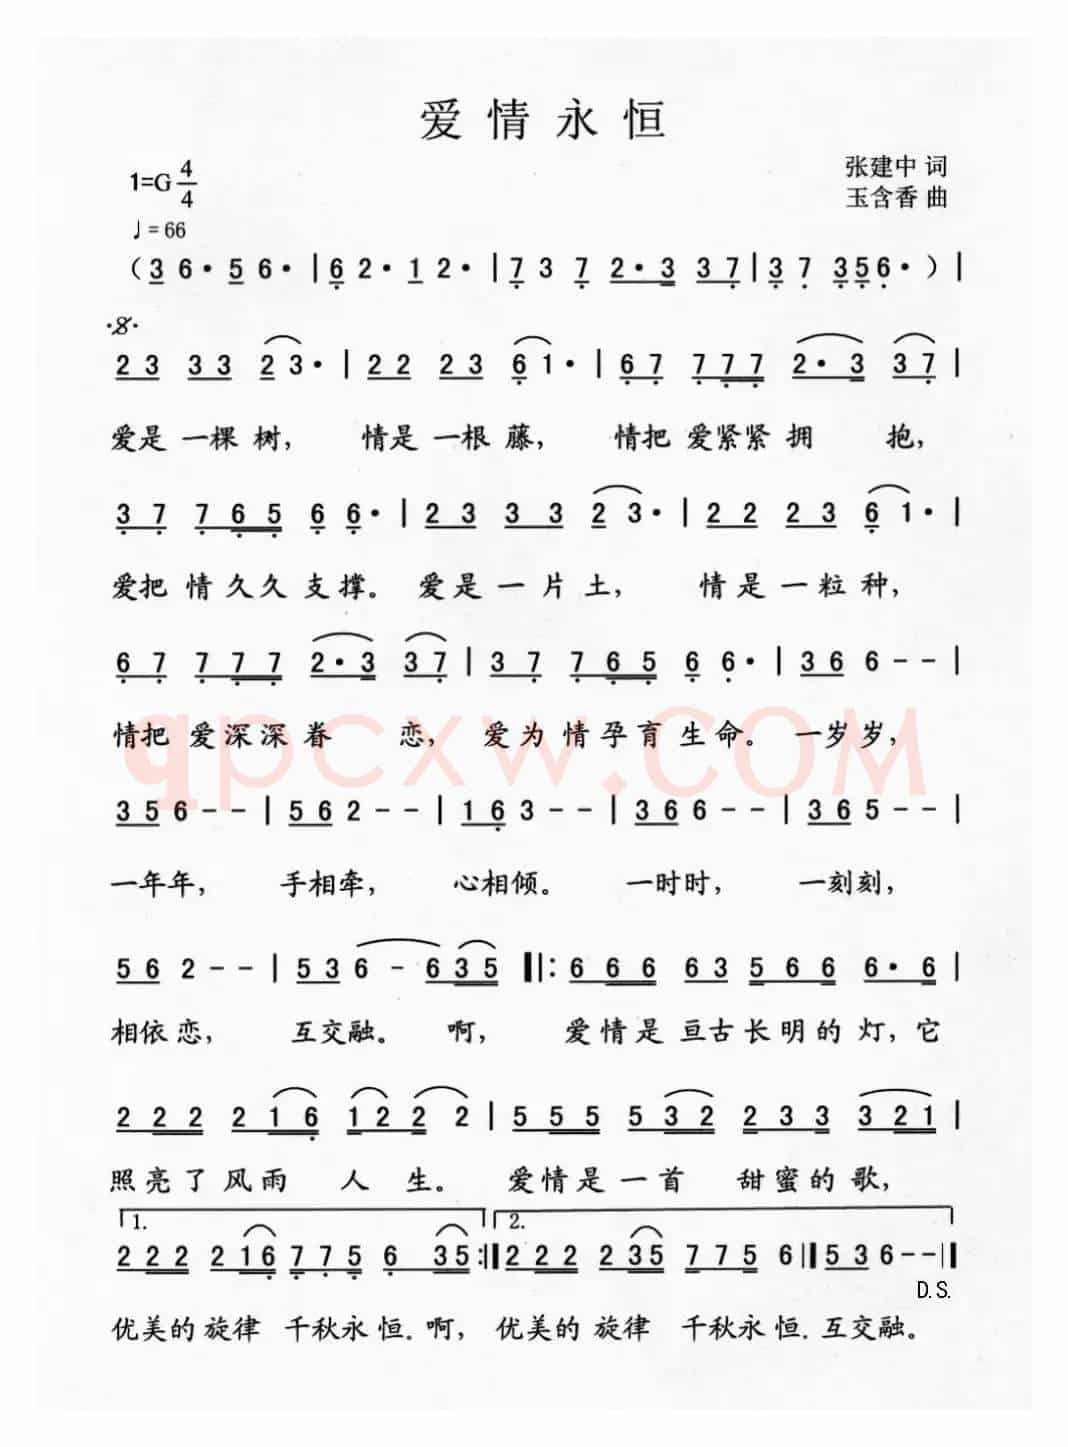 爱情永恒
1=G 4/4
张建中 词
玉含香 曲
♩=66
（3 6· 5 6· | 6 2· 1 2· | 7 3 7 2·3 3 7 | 3 7 3 5 6· ）|
2 3 3 3 2 3· | 2 2 2 3 6 1· | 6 7 7 7 7 2·3 3 7 |
爱是 一棵 树， 情是 一根 藤， 情把 爱紧紧 拥 抱，
3 7 7 6 5 6 6· | 2 3 3 3 2 3· | 2 2 2 3 6 1· |
爱把 情久久 支撑。 爱是 一片 土， 情是 一粒 种，
6 7 7 7 7 2·3 3 7 | 3 7 7 6 5 6 6· | 3 6 6 - - |
情把 爱深深 眷 恋， 爱为 情孕育 生命。 一岁岁，
qpcxw.COM
3 5 6 - - | 5 6 2 - - | 1 6 3 - - | 3 6 6 - - | 3 6 5 - - |
一年年， 手相牵， 心相倾。 一时时， 一刻刻，
5 6 2 - - | 5 3 6 - 6 3 5 ‖: 6 6 6 6 3 5 6 6 6·6 |
相依恋， 互交融。 啊， 爱情是 亘古长明的 灯，它
2 2 2 2 1 6 1 2 2 2 | 5 5 5 5 3 2 2 3 3 3 2 1 |
照亮了 风雨 人 生。 爱情是 一首 甜蜜的 歌，
1. 2.
2 2 2 2 1 6 7 7 5 6 3 5 :‖ 2 2 2 2 3 5 7 7 5 6 ‖ 5 3 6 - - ‖
D.S.
优美的 旋律 千秋永 恒.啊， 优美的 旋律 千秋永 恒.互交融。